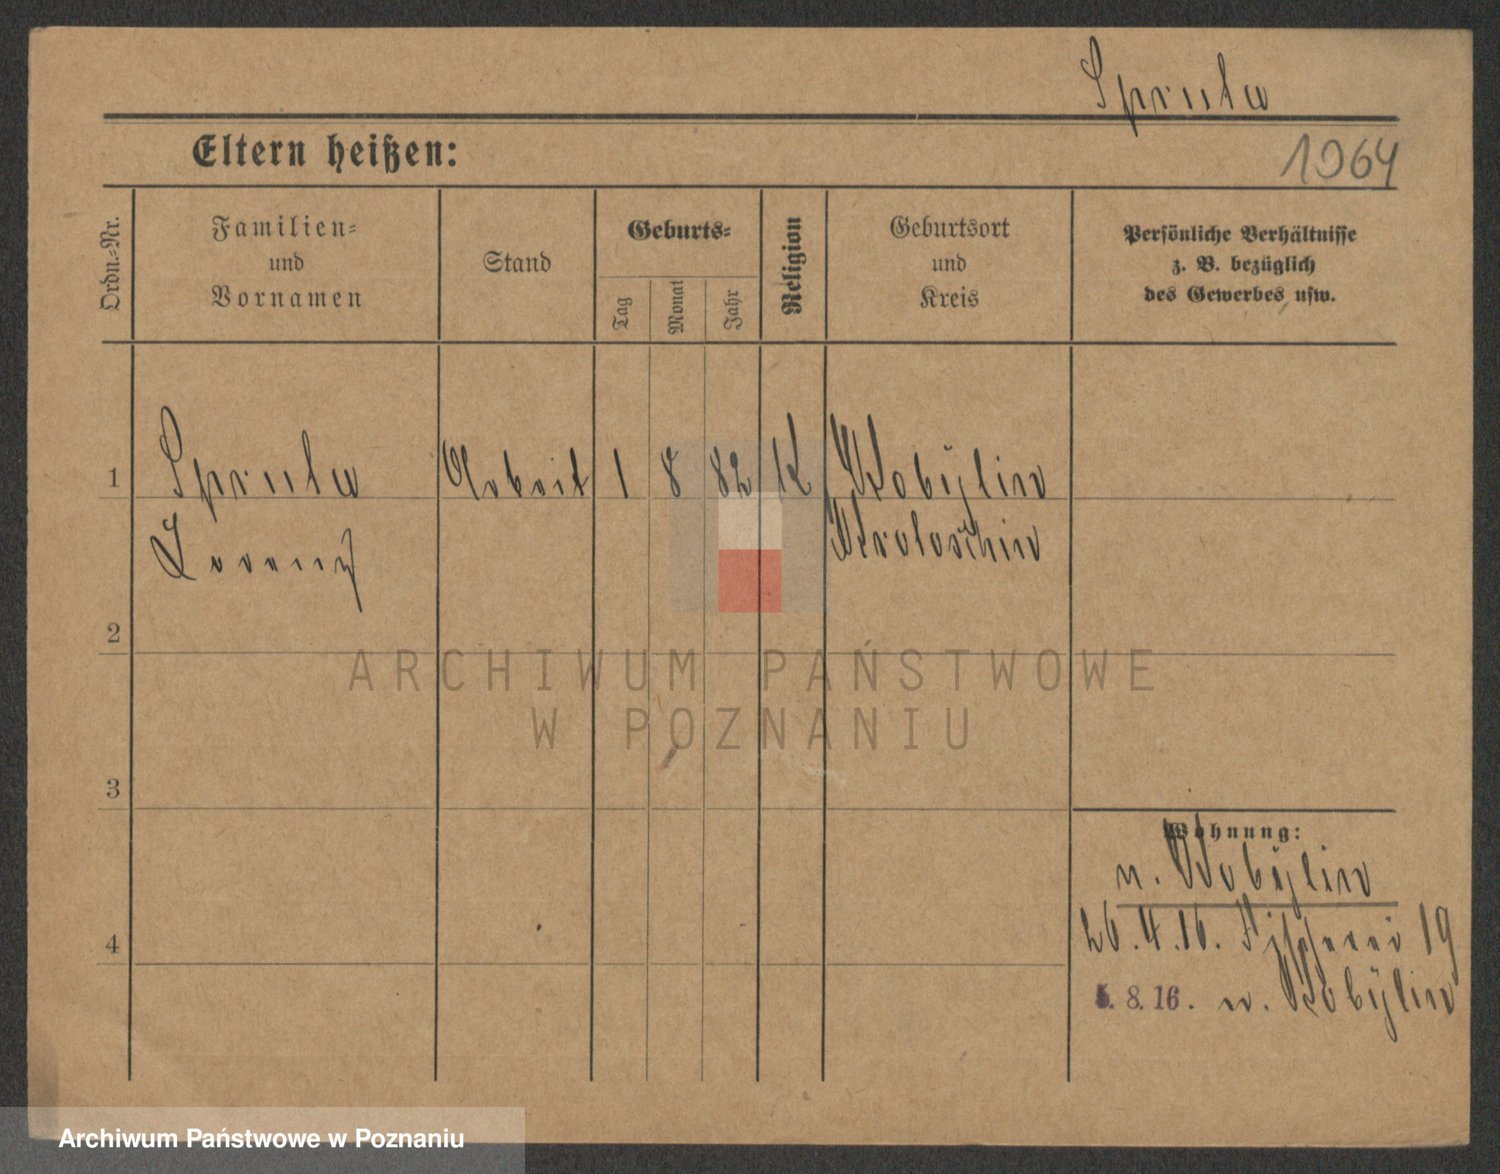 Spruta
Eltern heißen:
1064
Ordn.-Nr.
Familien-
und
Vornamen
Stand
Geburts-
Tag
Monat
Jahr
Religion
Geburtsort
und
Kreis
Persönliche Verhältnisse
z. B. bezüglich
des Gewerbes usw.
1
Spruta
Arbeit
1
8
82
K
Kobylin
Lorenz
Krotoschin
2
3
4
Wohnung:
n. Kobylin
26.4.16. Fischerei 19
5.8.16. n. Kobylin
ARCHIWUM PAŃSTWOWE
W POZNANIU
Archiwum Państwowe w Poznaniu